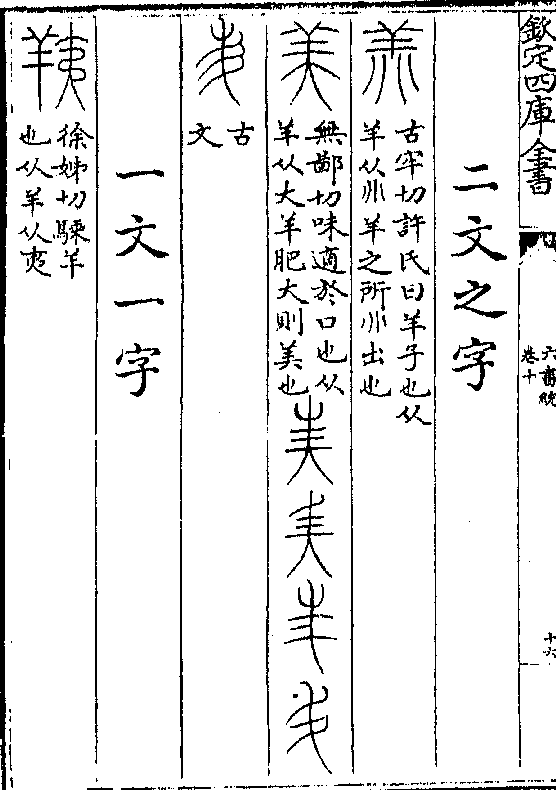 欽定四庫全書
六書統
卷十
十六
二文之字
羔
古牢切許氏曰羊子也从
羊从羊之所出也
美
無鄙切味適於口也从
羊从大羊肥大則美也
古
文
一文一字
羠
徐姊切羊
也从羊从夷